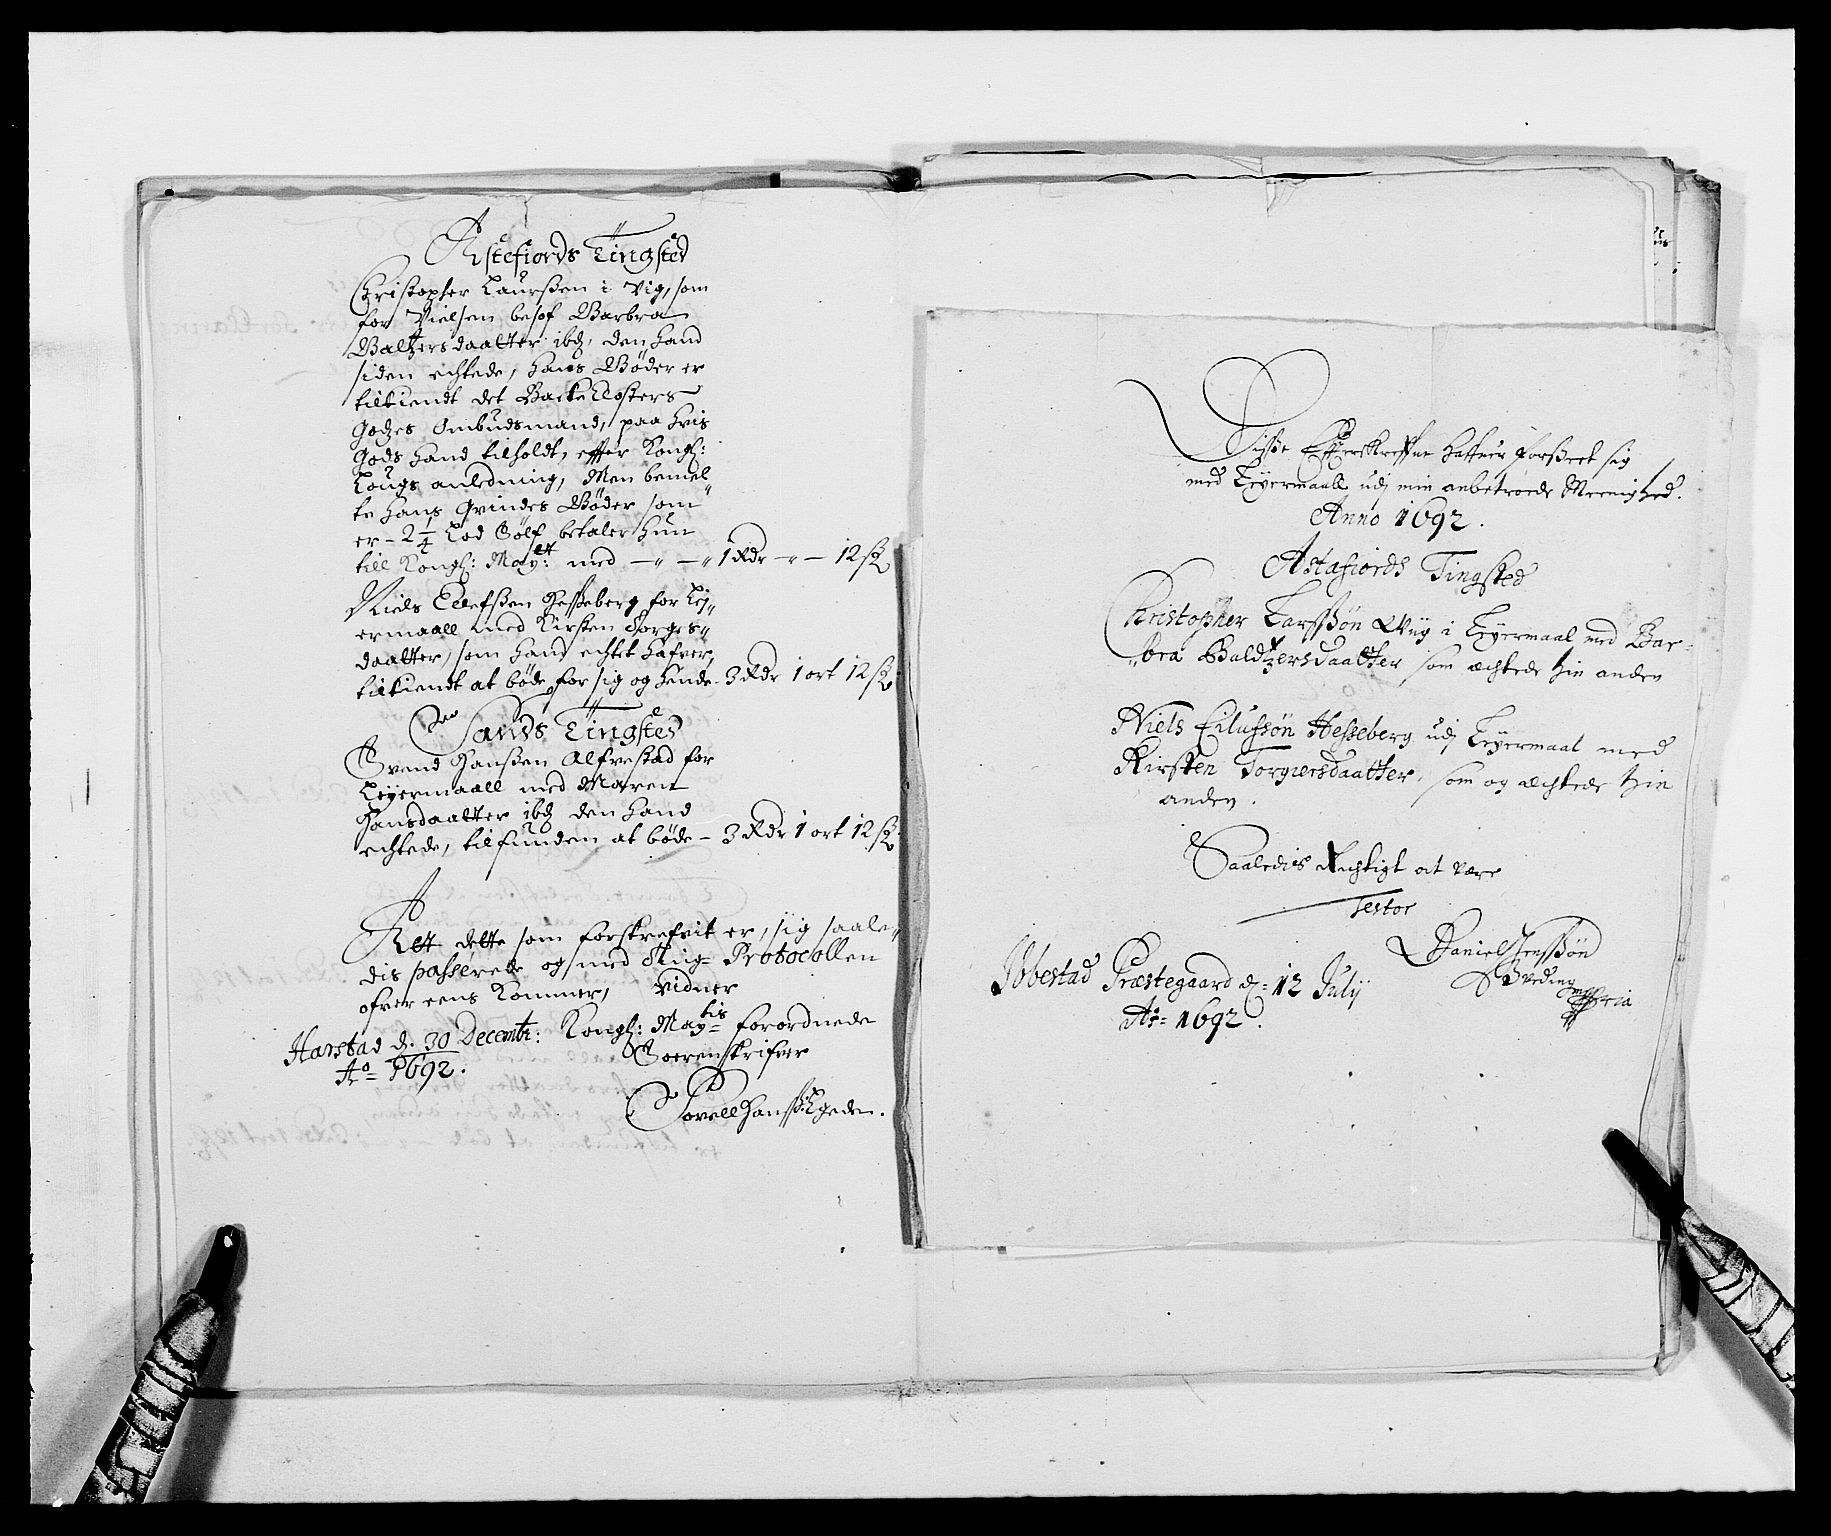 Astefiords Tingsted
Christopher Laurßen i Vig, som
for Vielsen besof Barbra
Baltzersdaatter ibd, den hand
siden echtede, hans Bøder er
tilkiendt det Backe Closters
Godzes Ombudsmand, paa hvis
Gods hand tilholdt, efter Kongl:
Lougs anledning, Men bemel-
te hans Qvindes Bøder som
er - 2 1/4 Lod Sølf betaler hun
till Kongl: Maytt: med — „ — „ 1 Rdr - „ — 12 ß
Niels Ellefßen Heßeberg for Ley„
ermaall med Kirsten Torges„
daatter, som hand echtet hafver,
tilkiendt at bøde for sig og hende - 3 Rdr 1 ort 12 ß
Sands Tingsted
Svend Hanßen Alfvestad for
Leyermaall med Maren
Hansdaatter ibd den hand
echtede, tilfunden at bøde - 3 Rdr 1 ort 12 ß
Att dette som forskrefvit er, sig saale„
dis passerede og med Ting= Protocollen
ofver eens kommer, Vidner
Harstad d. 30 Decembr: Kongl: Maytis forordnede
Ao= 1692. Soerenskrifver
Povell Hanß: Egede.
Disse Effterskreffne haffuer forßeet sig
med Leyermaall udj min anbetroede Meenighed.
Anno 1692.
Astafiords Tingsted
Christopher Larßøn Wiig i Leyermaal med Bar-
„bra Baldtzersdaatter som ächtede hin anden
Niels Eilufsøn Hesseberg udj Leyermaal med
Kirsten Torgiersdaatter, som og ächtede hin
anden.
Saaledis Rechtigt at være
Testor
Ibbestad Præstegaard d= 12 Julij Daniel Jenßøn
Ao= 1692. Hveding
mppria